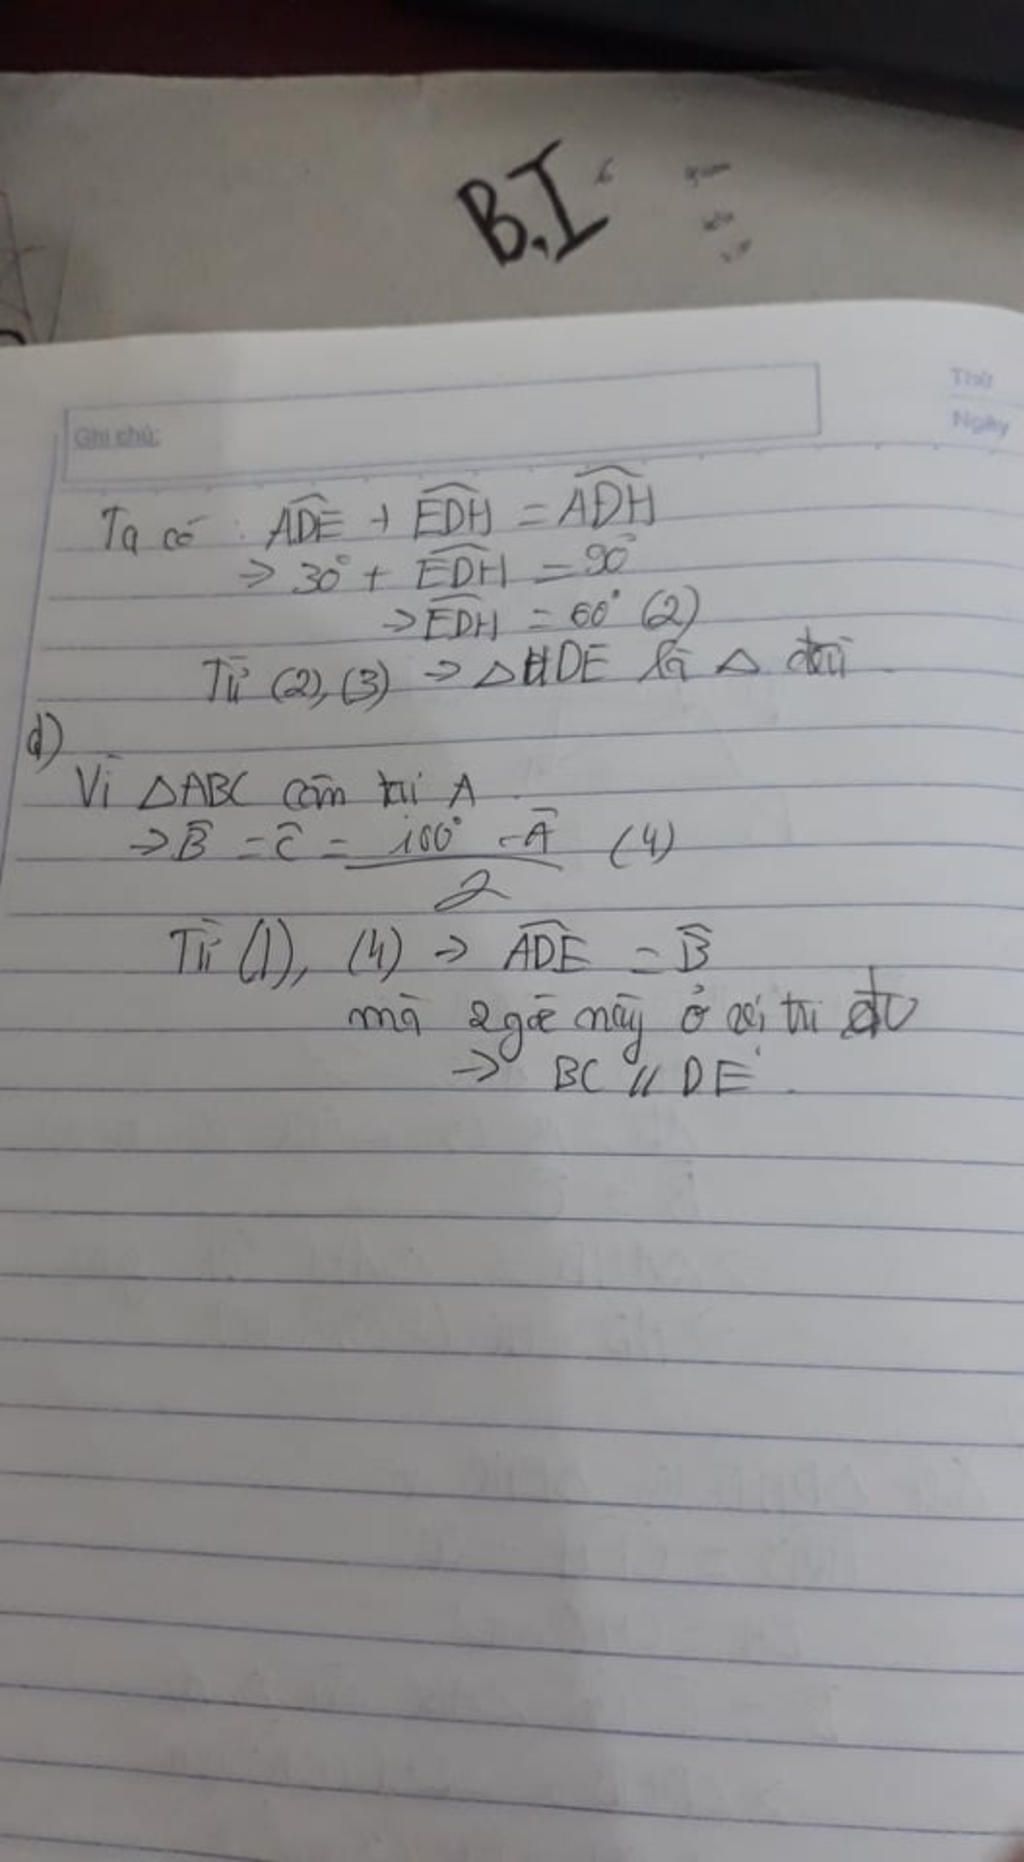 B.I
Thứ
Ngày
Ghi chú:
Ta có : ADE + EDH = ADH
⇒ 30° + EDH = 90°
⇒ EDH = 60° (2)
Từ (2), (3) ⇒ △HDE là △ đều
d)
Vì △ABC cân tại A
⇒ B = C = 180° - A (4)
2
Từ (1), (4) ⇒ ADE = B
mà 2 góc này ở vị trí đv
⇒ BC // DE.